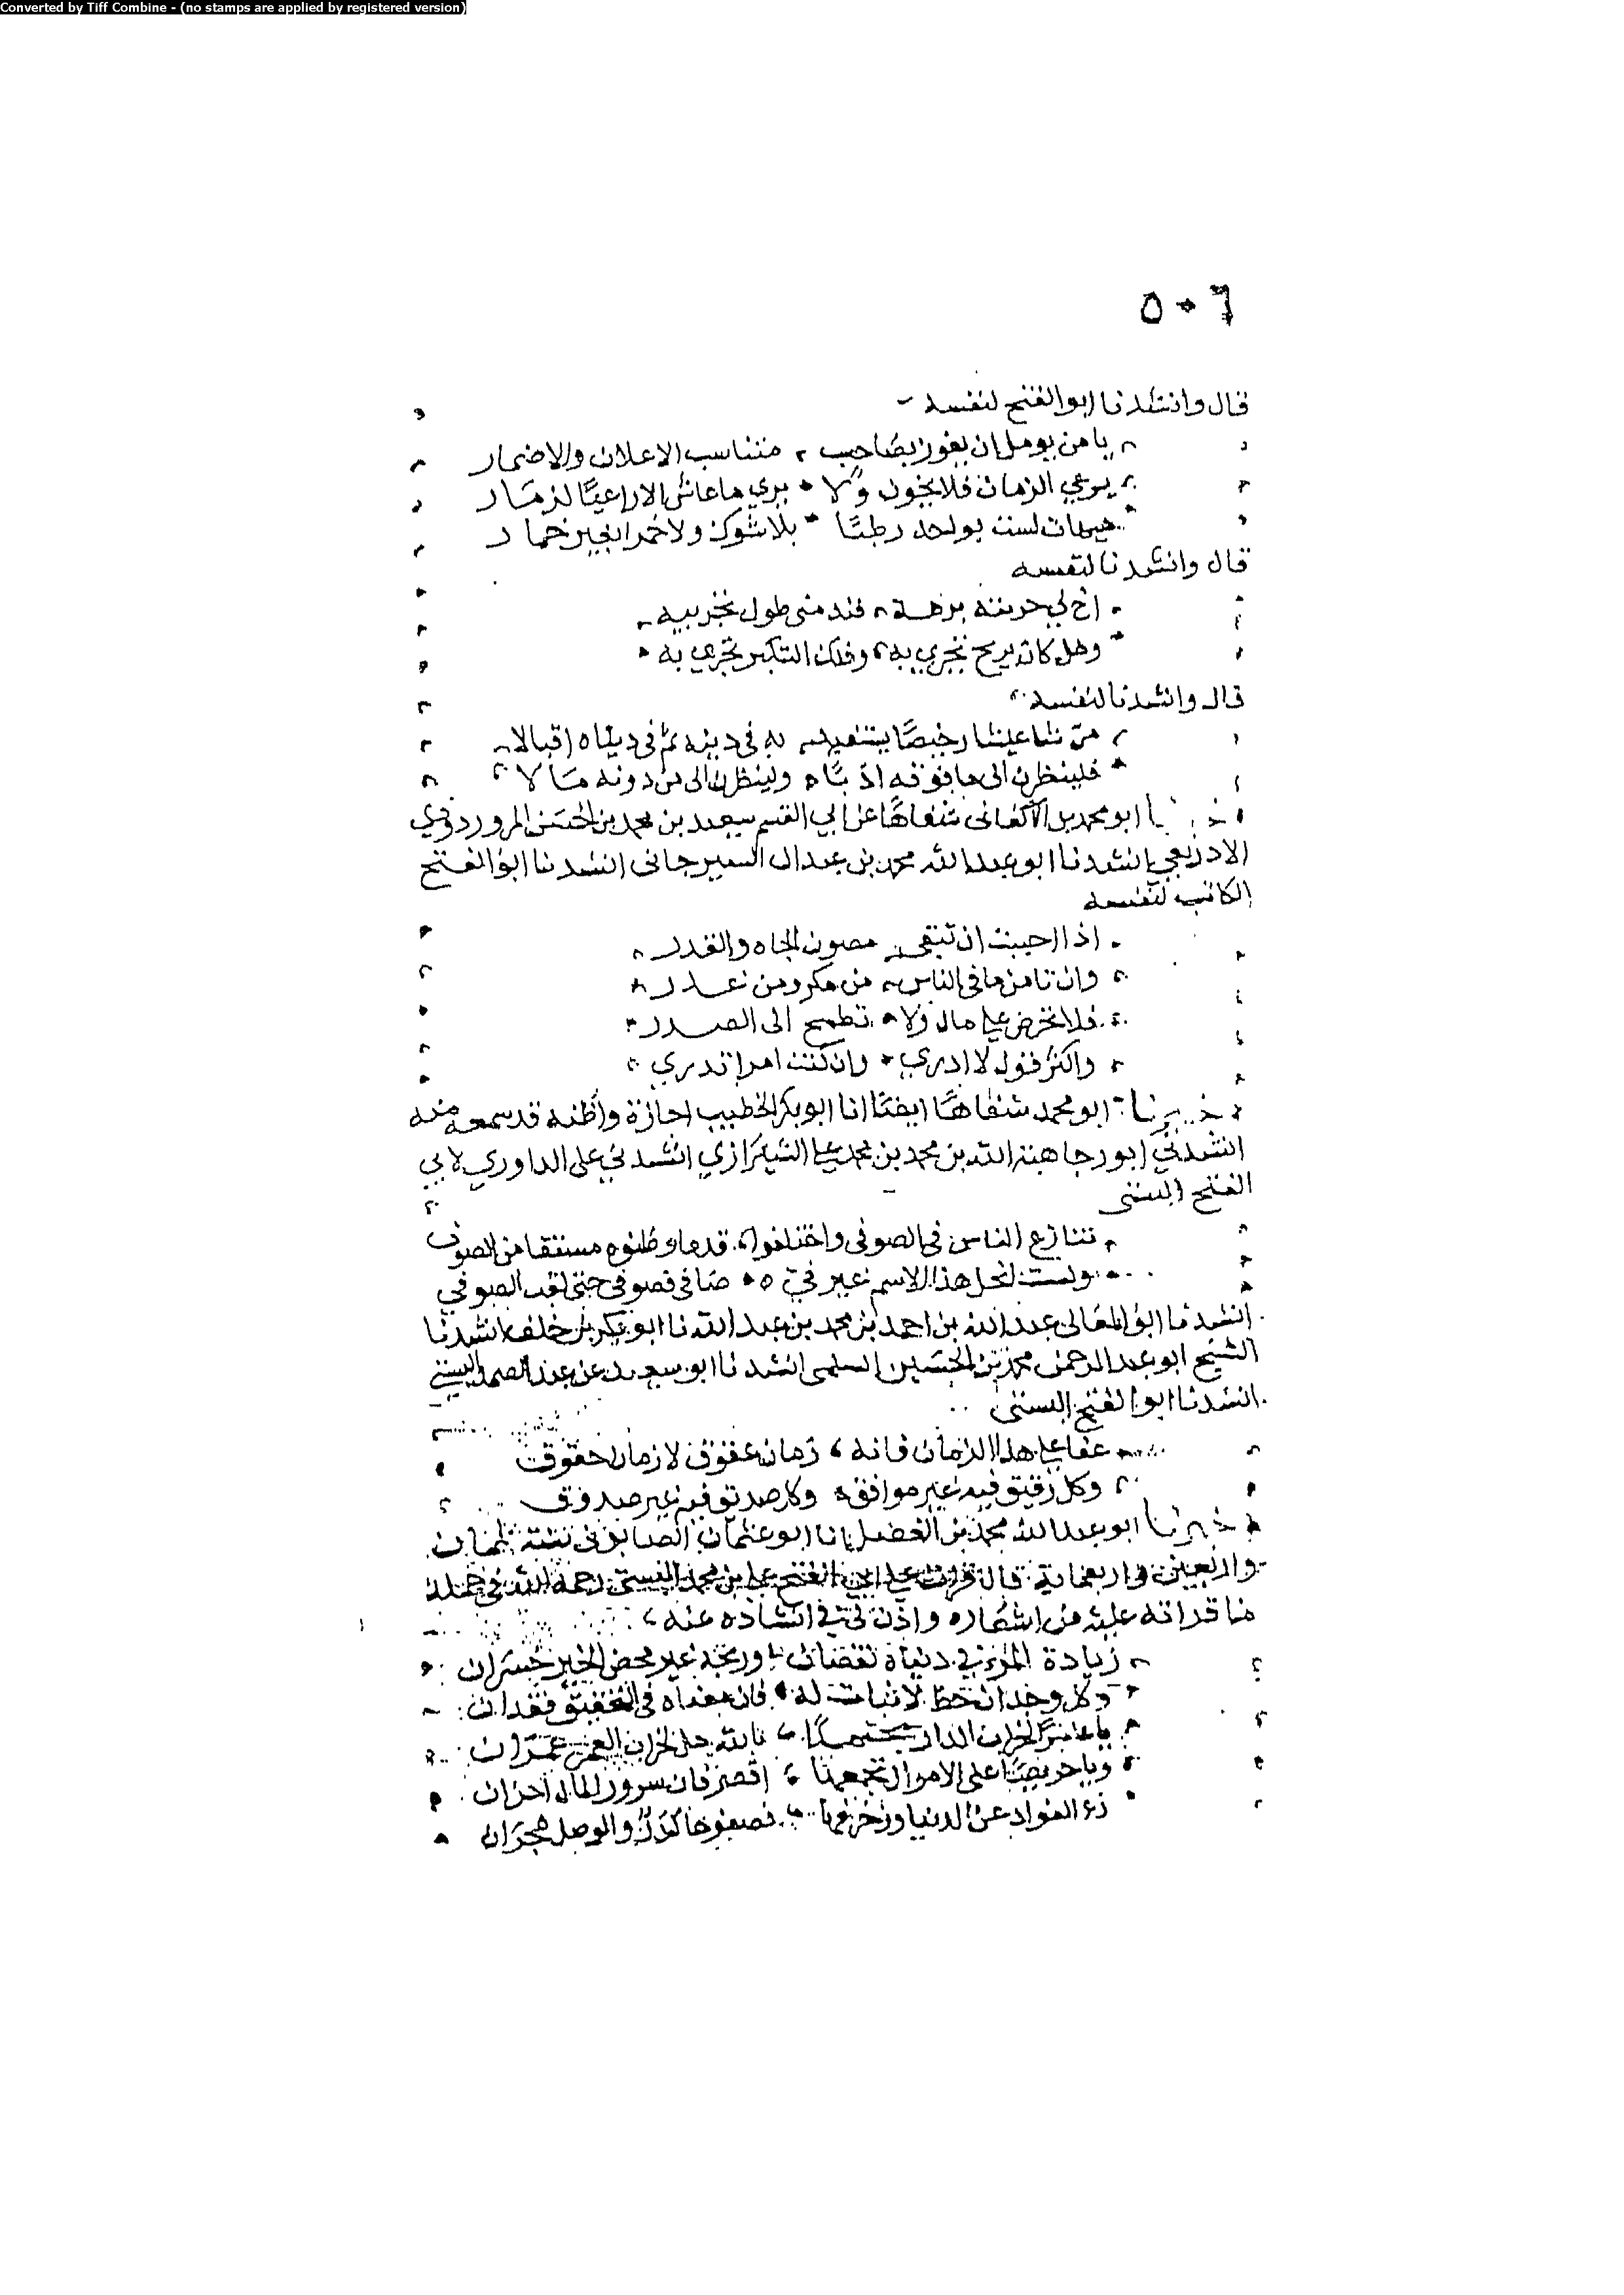 Converted by Tiff Combine - (no stamps are applied by registered version)
٥٠٦
قال وانشدنا ابو الفتح لنفسه
يا من يومل ان يفوز بصاحب متناسب الاعلان والاضمار
يرعي الزمان فلا يخون ولا يري ما عاش الا راعيًا لزمار
هيهات لست بواحد رطبًا بلا شوك ولا خمرا بغير خمار
قال وانشدنا لنفسه
اخ لي جربته برهة فندمني طول تجربيه
وهل كان ريح تجري به وفلك التكبر تجري به
قال وانشدنا لنفسه
من شا عيشا رخيصًا يستفيد به في دينه ثم في دنياه اقبالا
فلينظرن الى ما فوقه ادبًا ولينظرن الى من دونه مالا
ابو محمد بن الاكفاني شفاهًا عن ابي القسم سعيد بن محمد بن الحسن المروروذي
انشدنا ابو عبد الله محمد بن عبدال السيرجاني انشدنا ابو الفتح
الكاتب لنفسه
اذا احببت ان تبقى مصون الجاه والقدر
وان تامن ما في الناس من مكر ومن غدر
فلا تحرص على مال ولا تطمح الى الصدر
واكثر قول لا ادري وان كنت امرا تدري
خبرنا ابو محمد شفاهًا ايضًا انا ابو بكر الخطيب اجازة واظنه قد سمعه منه
انشدني ابو رجا هبة الله بن محمد بن علي الشيرازي انشدني على الداوري لابي
الفتح البستي
تنازع الناس في الصوفي واختلفوا قدما وظنوه مشتقا من الصوف
ولست انحل هذا الاسم غير فتى صافى فصوفي حتى لقب الصوفي
انشدنا ابو المعالى عبد الله بن احمد بن محمد بن عبد الله نا ابو بكر بن خلف انشدنا
الشيخ ابو عبد الرحمن محمد بن الحسين السلمى انشدنا ابو سعيد عن عبد الصمد البستي
انشدنا ابو الفتح البستى
عفا على هذا الزمان فانه زمان عقوق لا زمان حقوق
وكل رفيق فيه غير موافق وكل صديق فيه غير صدوق
خبرنا ابو عبد الله محمد بن الفضل انا ابو عثمان الصابوني سنة ثمان
واربعين واربعماية قال قرات على ابي الفتح علي بن محمد البستي رحمه الله في جملة
ما قراته عليه من اشعاره واذن لي في انشاده عنه
زيادة المرء في دنياه نقصان وربحه غير محض الخير خسران
وكل وجدان حظ لا ثبات له فان معناه في التحقيق فقدان
يا عامرًا لخراب الدار مجتهدًا بالله هل لخراب العمر عمران
ويا حريصًا على الاموال تجمعها اقصر فان سرور المال احزان
زع الفواد عن الدنيا وزخرفها فصفوها كدر والوصل هجران